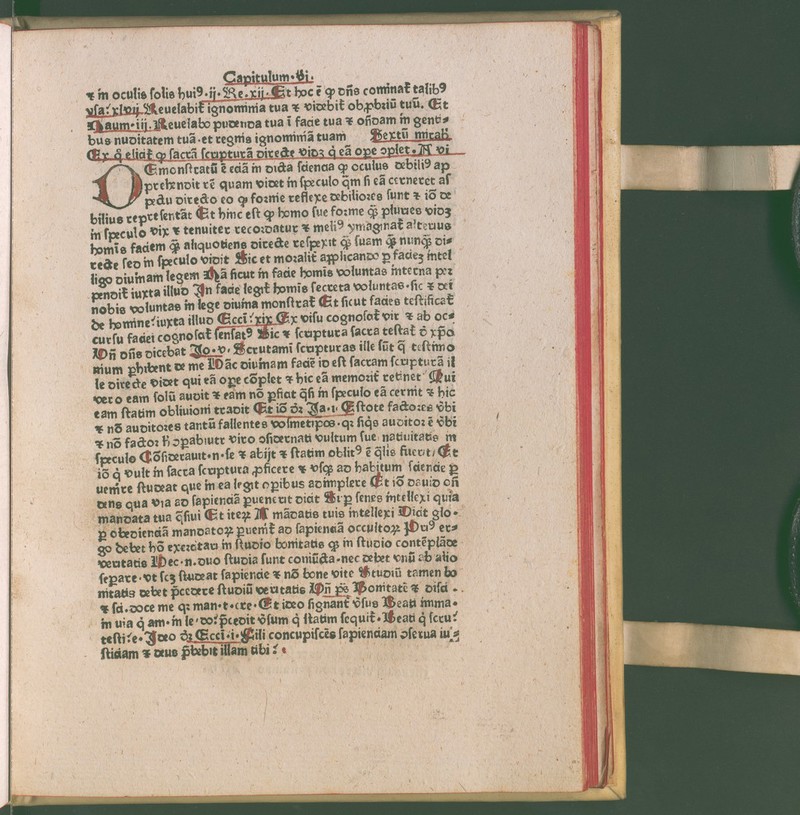 Capitulum·vi·
⁊ in oculis solis huiꝰ·ij·Re·xij·Et hoc ē ꝙ dn̄s cominat̄ talibꝰ
ysa: xlvij Reuelabit̄ ignominia tua ⁊ videbit̄ obꝓbriū tuū. Et
Naum·iij·Reuelabo pudenda tua ī facie tua ⁊ on̄dam in genti-
bus nuditatem tuā·et regnis ignominiā tuam Sextū mirab̄.
Ex q̄ elicit̄ ꝙ sacrā scripturā directe vidꝫ q̇ eā oꝑe ↄplet·R vi
DEmonstratū ē eciā in dicta sciencia ꝙ oculus debiliꝰ ap
prehendit rē quam videt in speculo q̄m si eā cerneret as
pectu directo eo ꝙ forme reflexe debiliores sunt ⁊ iō de
bilius representāt Et hinc est ꝙ homo sue forme q̄ꝫ pluries vidꝫ
in speculo vix ⁊ tenuiter recordatur ⁊ meliꝰ ymaginat̄ alterius
homīs faciem q̄ꝫ aliquotiens directe respexit q̄ꝫ suam q̄ꝫ nunq̄ꝫ di-
recte sed in speculo vidit Sic et moralit̄ applicando ꝑ faciēꝫ intel
ligo diuinam legem Nā sicut in facie homīs voluntas interna per
pendit̄ iuxta illud In facie legit̄ homīs secreta voluntas·sic ⁊ dei
nobis voluntas in lege diuina monstrat̄ Et sicut facies testificat̄
de homine: iuxta illud Ecci·xix Ex visu cognoscit̄ vir ⁊ ab oc-
cursu faciei cognoscit̄ sensatꝰ Sic ⁊ scriptura sacra testat̄ d̄ xp̄o
Vn̄ dn̄s dicebat Jo·v·Scrutamī scripturas ille sūt q̄ testimo
nium ꝑhibent de me Hāc diuinam faciē id est sacram scripturā il
le directe videt qui eā oꝑe cōplet ⁊ hic eā memorit̄ retinet Qui
vero eam solū audit ⁊ eam nō ꝑficit q̄si in speculo eā cernit ⁊ hic
eam statim obliuioni tradit Et iō dr̄ Ja·i·Estote factores v̄bi
⁊ nō auditores tantū fallentes vosmetipos·qꝛ siq̄s auditor ē v̄bi
⁊ nō factor h̄ ↄꝑabitur viro ↄsideranti vultum sue natiuitatis in
speculo Cōsiderauit·n·se ⁊ abijt ⁊ statim oblitꝰ ē q̄lis fuerit/Et
iō q̇ vult in sacra scriptura ꝓficere ⁊ vsꝙ ad habitum sciencie ꝑ
uenire studeat que in ea legit oꝑibus adimplere Et iō dauid on̄
dens qua via ad sapienciā ꝑuenerit dicit Suꝑ senes intellexi quia
mandata tua q̄siui Et iteꝝ A mādatis tuis intellexi Dicit glo·
ꝑ obedienciā mandatoꝝ ꝑuenit̄ ad sapienciā occultoꝝ Priꝰ er-
go debet hō exercitari in studio bonitatis ꝙ in studio contēplāde
veritatis Nec·n·duo studia sunt coniūcta·nec debet vnū ab alio
sepāre·vt scꝫ studeat sapiencie ⁊ nō bone vite Studiū tamen bo
nitatis debet p̄cedere studiū veritatis Vn̄ p̄s Bonitatē ⁊ disci·
⁊ sci·doce me qꝛ man·t·cre·Et ideo signant̄ v̄sus Beati imma·
in via q̇ am·in le·do: p̄cedit v̄sum q̇ statim sequit̄·Beati q̇ scru:
testi:e·Ideo dr̄ Ecci·i·Fili concupiscēs sapienciam ↄserua iu-
sticiam ⁊ deus p̄bebit illam tibi: